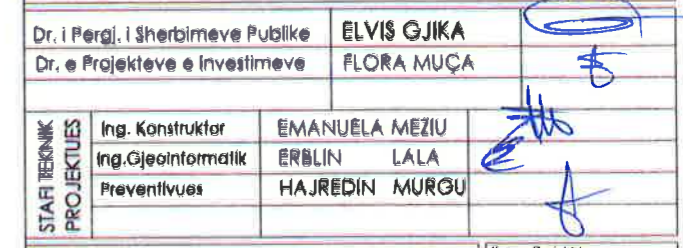 Dr. i Pergj. i Sherbimeve Publike ELVIS GJIKA
Dr. e Projekteve e Investimeve FLORA MUÇA
STAFI TEKNIK PROJEKTUES
Ing. Konstruktor EMANUELA MEZIU
Ing.Gjeoinformatik ERBLIN LALA
Preventivues HAJREDIN MURGU